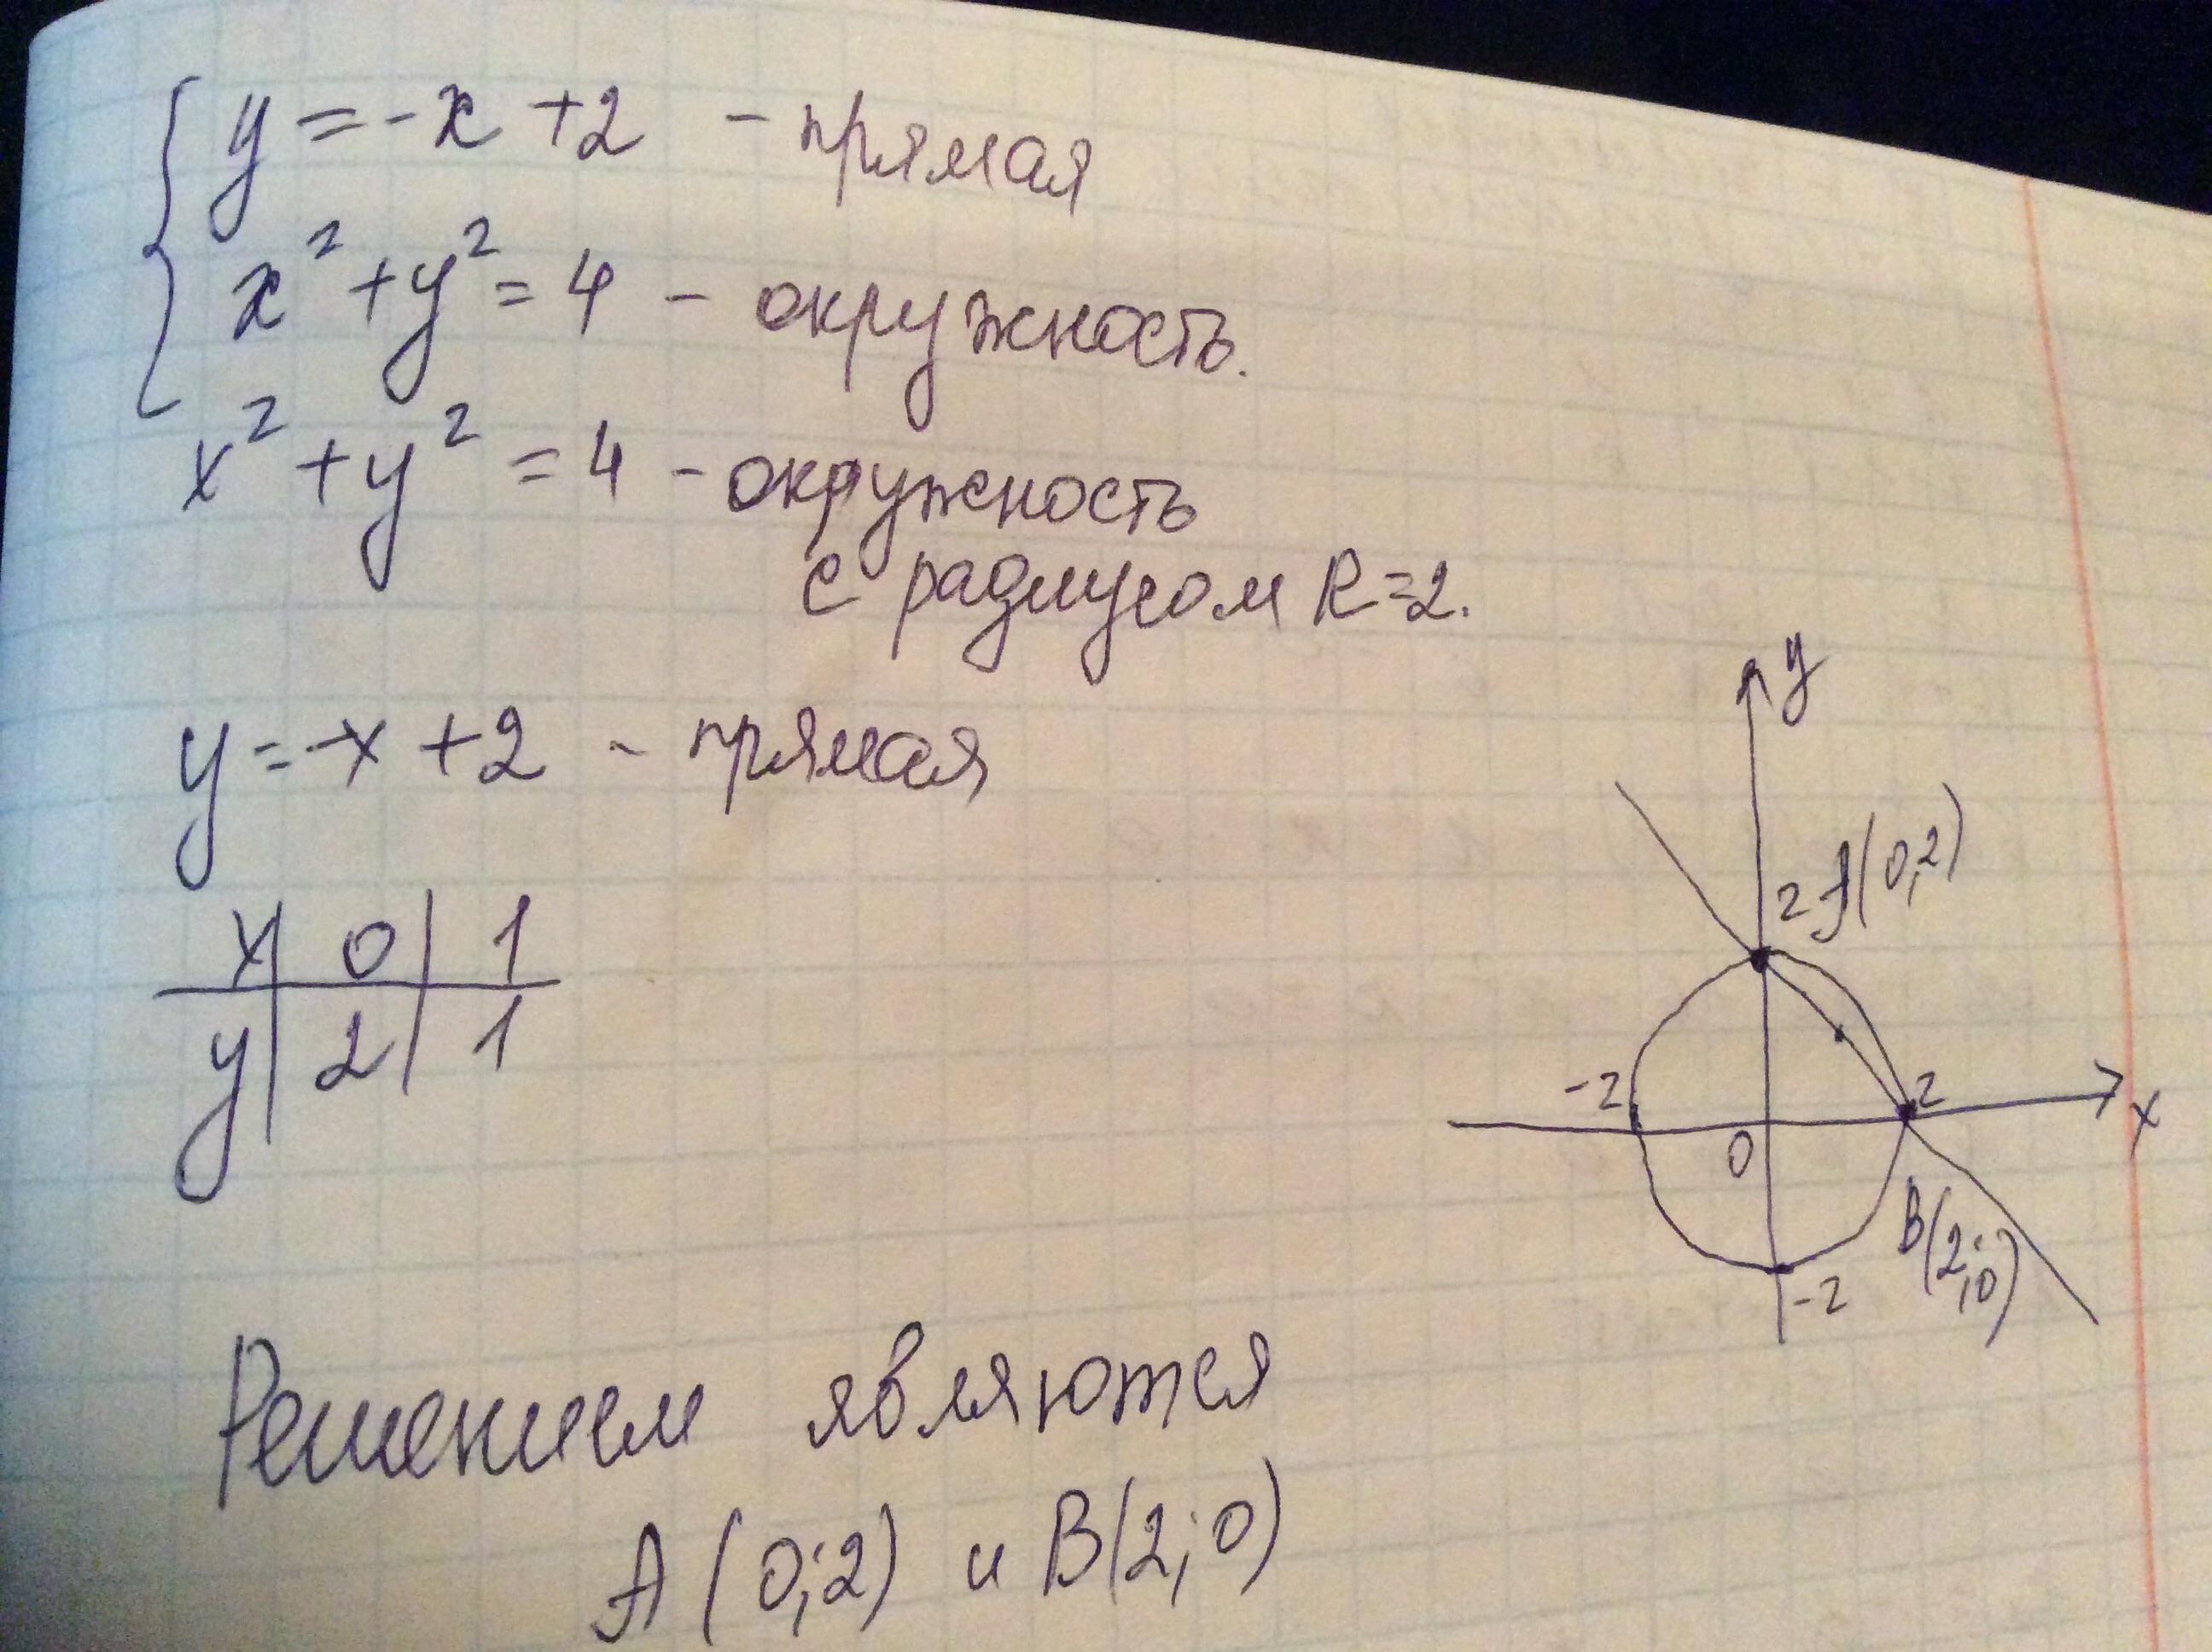 y = -x + 2 - прямая
x² + y² = 4 - окружность.
x² + y² = 4 - окружность
с радиусом R=2.
y = -x + 2 - прямая
x | 0 | 1
y | 2 | 1
y
2 A(0,2)
-2
2
x
0
B(2;0)
-2
Решением являются
A (0;2) и B(2;0)